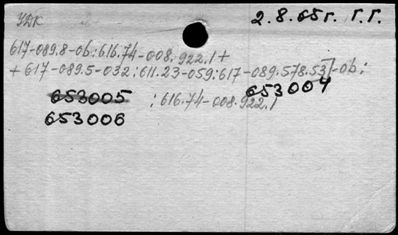 УДК
2.8.65г. Г.Г.
617-089.8-06:616.74-008.922.1+
+617-089.5-032:611.23-059:617-089.578.53]-06:
:616.74-008.922.1
653004
653005
653006